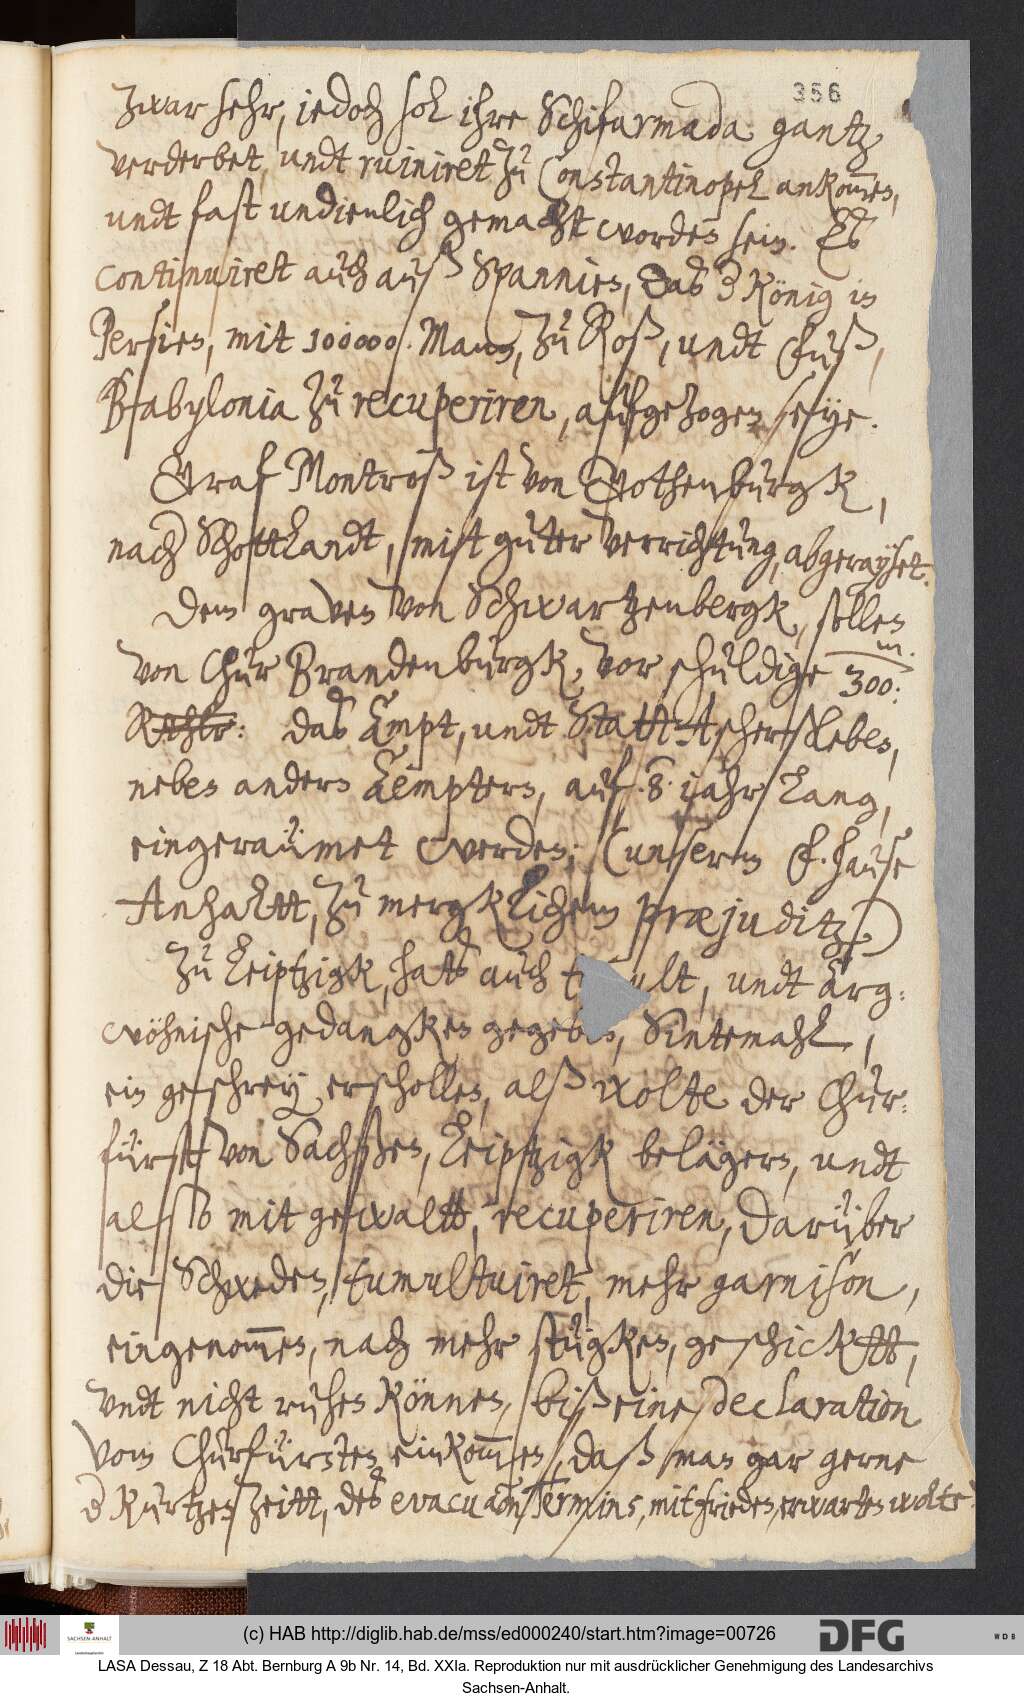 356
zwar sehr, iedoch sol ihre Schifarmada gantz
verderbet, undt ruiniret zu Constantinopel ankom̅en,
undt fast undienlich gemacht worden sein. Es
continuiret auch auß Spannien, das d König in
Persien, mit 100000. Mann, zu Roß, undt Fuß,
Babylonia zu recuperiren, aufgezogen seye.
Graf Montroß ist von Gothenburgk,
nach Schottlandt, mit guter verrichtung, abgerayset.
Dem graven von Schwartzenbergk, sollen
von Chur Brandenburgk, vor schuldige 300: m.
Rthlr: das Ampt, undt Stadt Aschersleben,
neben andern Aemptern, auf .8. iahr lang,
eingeraümet werden; (unserm F. hause
Anhaltt, zu mergklichem præjuditz.)
Zu Leiptzigk, hats auch ult, undt arg-
wöhnische gedangken gegeben, Sintemahl,
ein geschrey erschollen, alß wolte der Chur-
fürst von Sachßen, Leiptzigk belägern, undt
also mit gewaltt, recuperiren, darüber
die Schweden, tumultuiret, mehr garnison,
eingenom̅en, nach mehr stügken, geschicktt,
undt nicht ruhen können, biß eine declaration
vom Churfürsten einkom̅en, daß man gar gerne
d kurtzen zeitt, des evacuaon Termins, mit frieden, erwarten wolte.
(c) HAB http://diglib.hab.de/mss/ed000240/start.htm?image=00726
SACHSEN-ANHALT
DFG
WDB
LASA Dessau, Z 18 Abt. Bernburg A 9b Nr. 14, Bd. XXIa. Reproduktion nur mit ausdrücklicher Genehmigung des Landesarchivs
Sachsen-Anhalt.